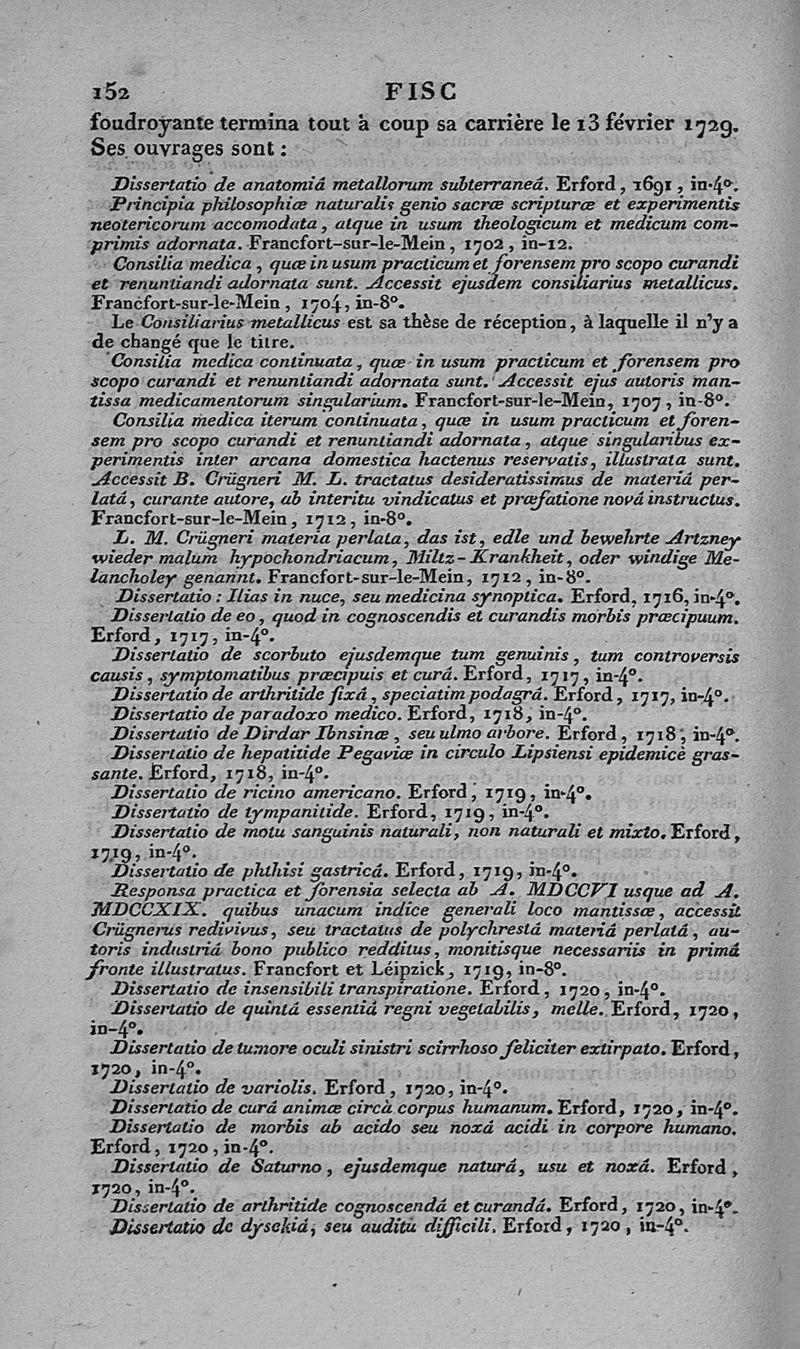 152 FISC
foudroyante termina tout à coup sa carrière le 13 février 1729.
Ses ouvrages sont :
Dissertatio de anatomiâ metallorum subterraneâ. Erford, 1691, in-4°.
Principia philosophiæ naturalis genio sacræ scripturæ et experimentis
neotericorum accomodata, atque in usum theologicum et medicum com-
primis adornata. Francfort-sur-le-Mein, 1702, in-12.
Consilia medica, quæ in usum practicum et forensem pro scopo curandi
et renuntiandi adornata sunt. Accessit ejusdem consiliarius metallicus.
Francfort-sur-le-Mein, 1704, in-8°.
Le Consiliarius metallicus est sa thèse de réception, à laquelle il n'y a
de changé que le titre.
Consilia medica continuata, quæ in usum practicum et forensem pro
scopo curandi et renuntiandi adornata sunt. Accessit ejus autoris man-
tissa medicamentorum singularium. Francfort-sur-le-Mein, 1707, in-8°.
Consilia medica iterum continuata, quæ in usum practicum et foren-
sem pro scopo curandi et renuntiandi adornata, atque singularibus ex-
perimentis inter arcana domestica hactenus reservatis, illustrata sunt.
Accessit B. Crügneri M. L. tractatus desideratissimus de materiâ per-
latâ, curante autore, ab interitu vindicatus et præfatione novâ instructus.
Francfort-sur-le-Mein, 1712, in-8°.
L. M. Crügneri materia perlata, das ist, edle und bewehrte Artzney
wieder malum hypochondriacum, Miltz-Krankheit, oder windige Me-
lancholey genannt. Francfort-sur-le-Mein, 1712, in-8°.
Dissertatio : Ilias in nuce, seu medicina synoptica. Erford, 1716, in-4°.
Dissertatio de eo, quod in cognoscendis et curandis morbis præcipuum.
Erford, 1717, in-4°.
Dissertatio de scorbuto ejusdemque tum genuinis, tum controversis
causis, symptomatibus præcipuis et curâ. Erford, 1717, in-4°.
Dissertatio de arthritide fixâ, speciatim podagrâ. Erford, 1717, in-4°.
Dissertatio de paradoxo medico. Erford, 1718, in-4°.
Dissertatio de Dirdar Ibnsinæ, seu ulmo arbore. Erford, 1718, in-4°.
Dissertatio de hepatitide Pegaviæ in circulo Lipsiensi epidemicè gras-
sante. Erford, 1718, in-4°.
Dissertatio de ricino americano. Erford, 1719, in-4°.
Dissertatio de tympanitide. Erford, 1719, in-4°.
Dissertatio de motu sanguinis naturali, non naturali et mixto. Erford,
1719, in-4°.
Dissertatio de phthisi gastricâ. Erford, 1719, in-4°.
Responsa practica et forensia selecta ab A. MDCCVI usque ad A.
MDCCXIX. quibus unacum indice generali loco mantissæ, accessit
Crügnerus redivivus, seu tractatus de polychrestâ materiâ perlatâ, au-
toris industriâ bono publico redditus, monitisque necessariis in primâ
fronte illustratus. Francfort et Léipzick, 1719, in-8°.
Dissertatio de insensibili transpiratione. Erford, 1720, in-4°.
Dissertatio de quintâ essentiâ regni vegetabilis, melle. Erford, 1720,
in-4°.
Dissertatio de tumore oculi sinistri scirrhoso feliciter extirpato. Erford,
1720, in-4°.
Dissertatio de variolis. Erford, 1720, in-4°.
Dissertatio de curâ animæ circà corpus humanum. Erford, 1720, in-4°.
Dissertatio de morbis ab acido seu noxâ acidi in corpore humano.
Erford, 1720, in-4°.
Dissertatio de Saturno, ejusdemque naturâ, usu et noxâ. Erford,
1720, in-4°.
Dissertatio de arthritide cognoscendâ et curandâ. Erford, 1720, in-4°.
Dissertatio de dysekiâ, seu auditu difficili. Erford, 1720, in-4°.